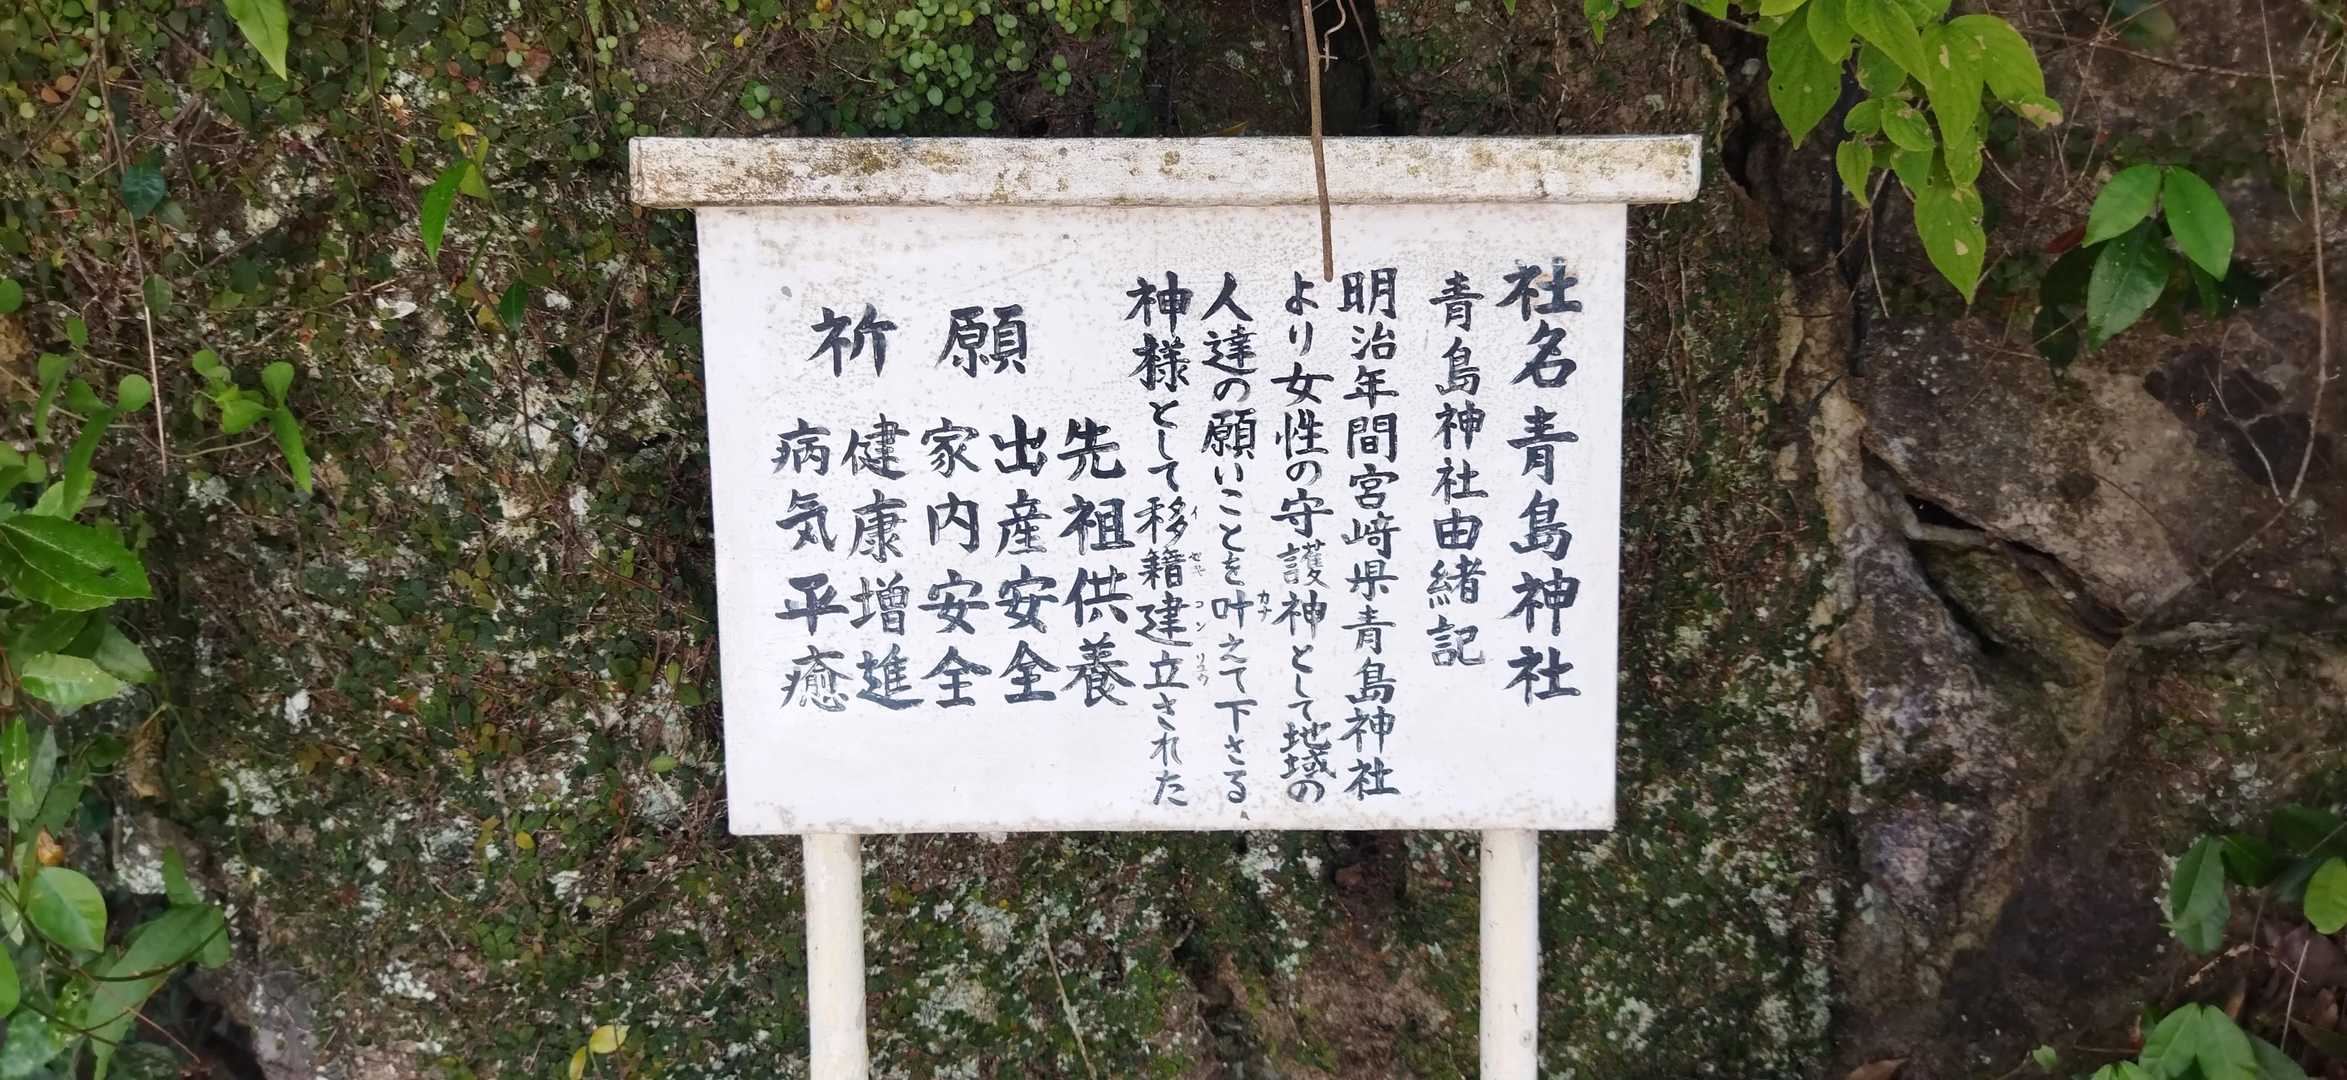 社名 青島神社
青島神社由緒記
明治年間宮﨑県青島神社
より女性の守護神として地域の
人達の願いことを叶えて下さる、
神様として移籍建立された
祈願
先祖供養
出産安全
家内安全
健康増進
病気平癒